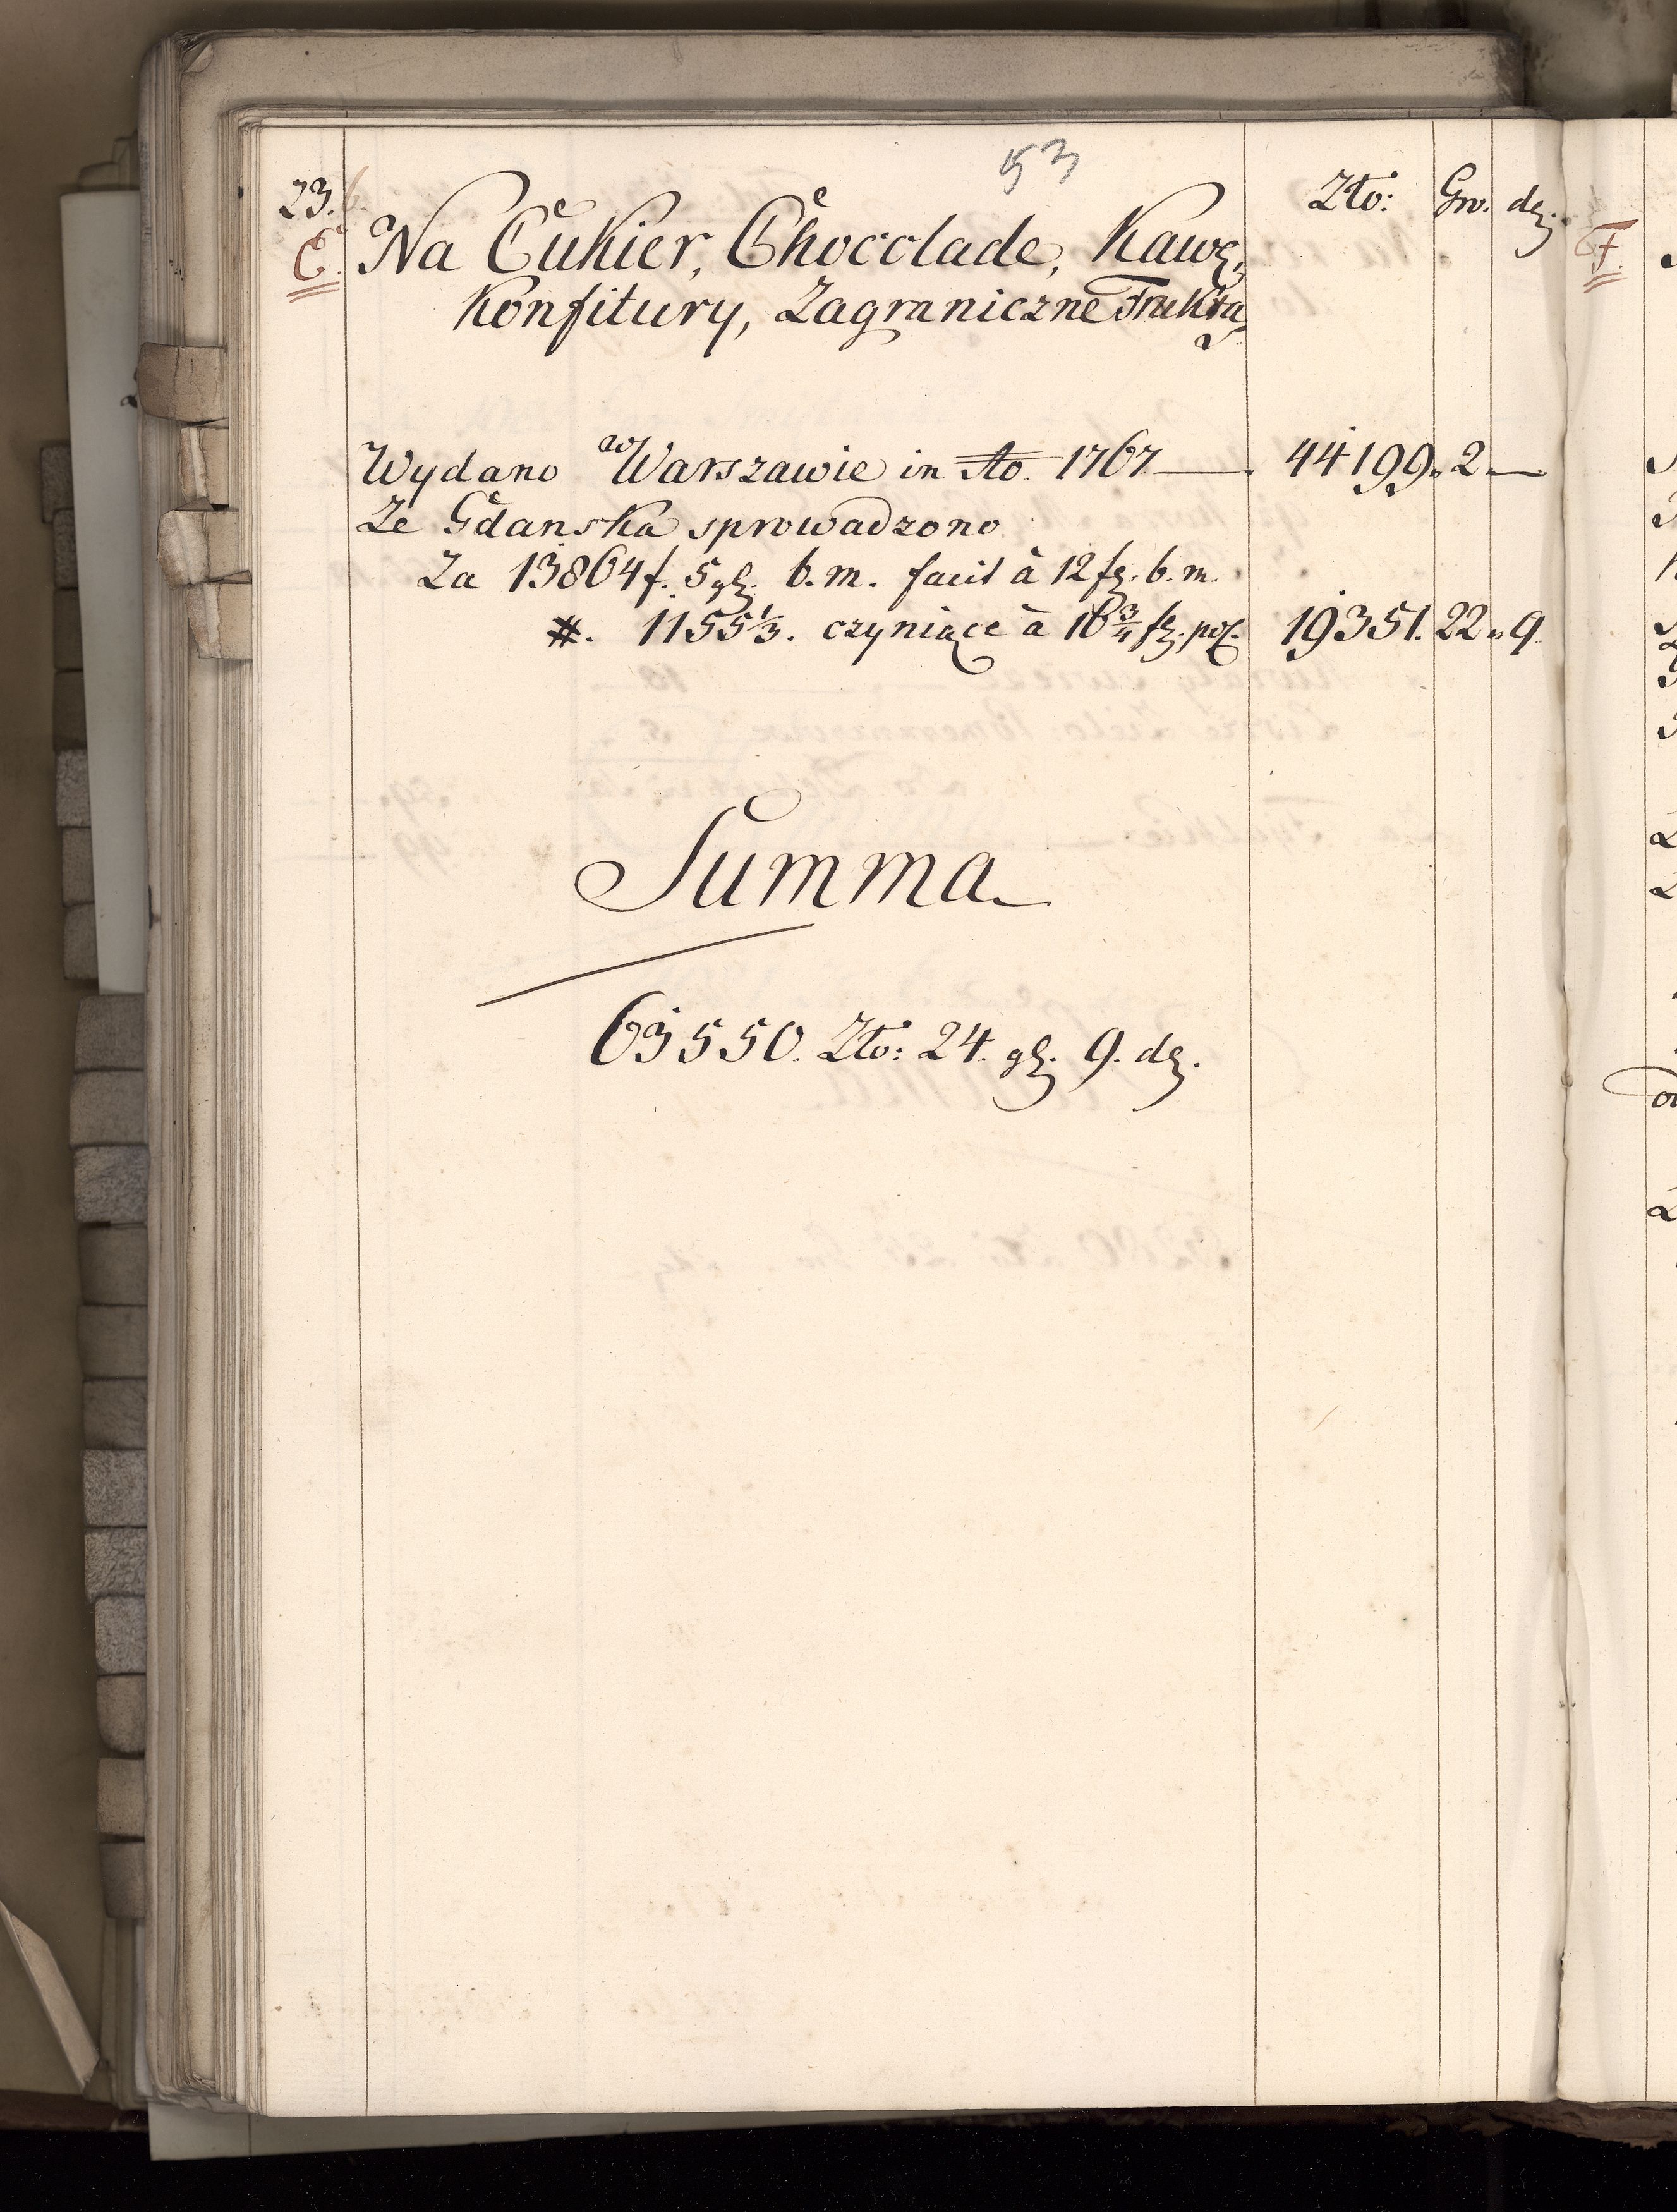 53
23. Zło: Gro. dz.
C. Na Cukier, Chocolade, Kawę,
Konfitury, Zagraniczne Frukta,
Wydano w Warszawie in Ao. 1767 — 44199 „ 2 „ —
Ze Gdanska sprowadzono
Za 13864 f. 5 gz. b. m. facit à 12 fz. b. m.
#. 1155 1/3. czyniące à 16 3/4 fz. pol. 19351. 22 „ 9.
Summa
63550. Zło: 24. gz. 9. dz.
F.